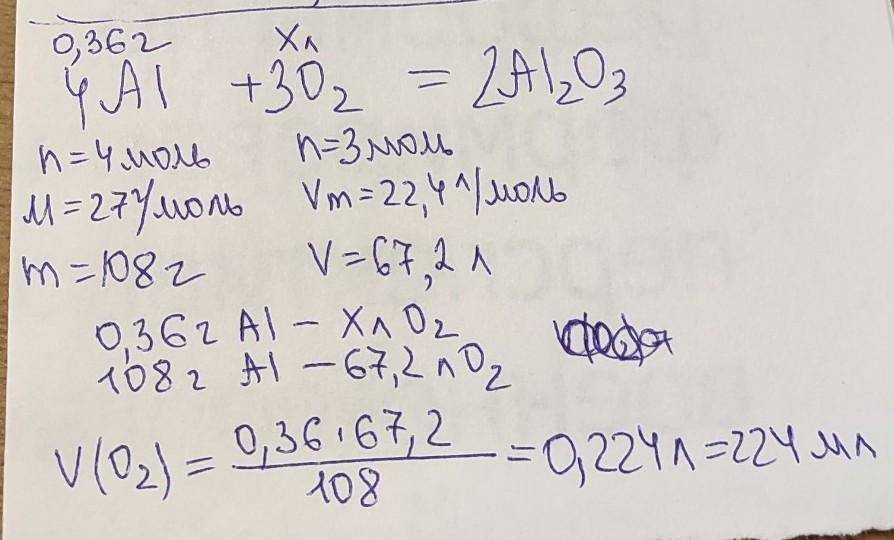 0,36г Xл
4Al +3O₂ = 2Al₂O₃
n=4моль n=3моль
M=27г/моль Vm=22,4л/моль
m=108г V=67,2л
0,36г Al – Xл O₂
108г Al – 67,2лO₂
V(O₂) = 0,36·67,2 / 108 = 0,224л=224мл